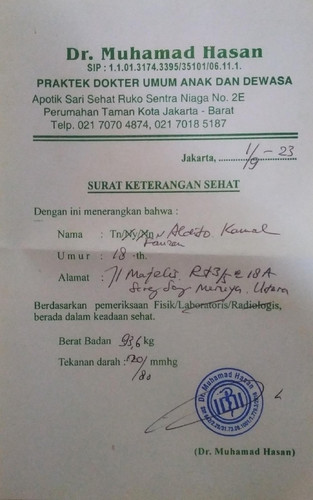 Dr. Muhamad Hasan
SIP : 1.1.01.3174.3395/35101/06.11.1.
PRAKTEK DOKTER UMUM ANAK DAN DEWASA
Apotik Sari Sehat Ruko Sentra Niaga No. 2E
Perumahan Taman Kota Jakarta - Barat
Telp. 021 7070 4874, 021 7018 5187
Jakarta, 1/9 - 23
SURAT KETERANGAN SEHAT
Dengan ini menerangkan bahwa :
Nama : Tn/Ny/Nn Kamal
Umur : 18 th.
Alamat : Jl
Utara
Berdasarkan pemeriksaan Fisik/Laboratoris/Radiologis,
berada dalam keadaan sehat.
Berat Badan 93,6 kg
Tekanan darah : 120/80 mmhg
Dr. Muhamad Hasan
(Dr. Muhamad Hasan)